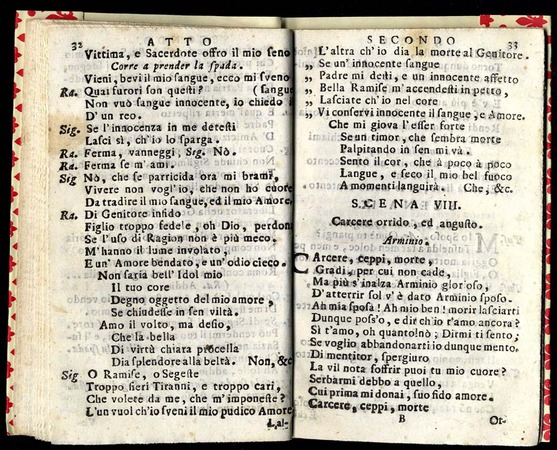 32 ATTO
Vittima, e Sacerdote offro il mio seno
Corre a prender la spada.
Vieni, bevi il mio sangue, ecco mi sveno
Ra. Quai furori son questi? (sangue
Non vuò sangue innocente, io chiedo il
D'un reo.
Sig. Se l'innocenza in me detesti
Lasci sì, ch'io lo sparga.
Ra. Ferma, vanneggi, Sig. Nò.
Ra. Ferma se m'ami.
Sig Nò, che se parricida ora mi brami,
Vivere non vogl'io, che non ho cuore
Da tradire il mio sangue, ed il mio Amore.
Ra. Di Genitore infido
Figlio troppo fedele, oh Dio, perdona
Se l'uso di Ragion non è più meco.
M'hanno il lume involato,
E un' Amore bendato, e un'odio cieco.
Non saria bell' Idol mio
Il tuo core
Degno oggetto del mio amore,
Se chiudesse in sen viltà.
Amo il volto, ma desio,
Che la bella
Di virtù chiara procella
Dia splendore alla beltà. Non, &c
Sig O Ramise, o Segeste
Troppo fieri Tiranni, e troppo cari,
Che volete da me, che m'imponeste?
L'un vuol ch'io sveni il mio pudico Amore
L'al-
SECONDO 33
L'altra ch'io dia la morte al Genitore.
„ Se un' innocente sangue
„ Padre mi desti, e un innocente affetto
„ Bella Ramise m'accendesti in petto,
„ Lasciate ch'io nel core
„ Vi conservi innocente il sangue, e Amore.
Che mi giova l'esser forte
Se un timor, che sembra morte
Palpitando in sen mi và.
Sento il cor, che à poco à poco
Langue, e seco il mio bel fuoco
A momenti languirà. Che, &c.
SCENA VIII.
Carcere orrido, ed angusto.
Arminio.
CArcere, ceppi, morte,
Gradi, per cui non cade,
Ma più s'inalza Arminio glorioso,
D'atterrir sol v'è dato Arminio sposo.
Ah mia sposa! Ah mio ben! morir lasciarti
Dunque poss'o, e dir ch'io t'amo ancora?
Sì t'amo, oh quanto! nò; Dirmi ti sento;
Se voglio abbandonarti io dunque mento.
Di mentitor, spergiuro
La vil nota soffrir puoi tu mio cuore?
Serbarmi debbo a quello,
Cui prima mi donai, suo fido amore.
Carcere, ceppi, morte
B Or-